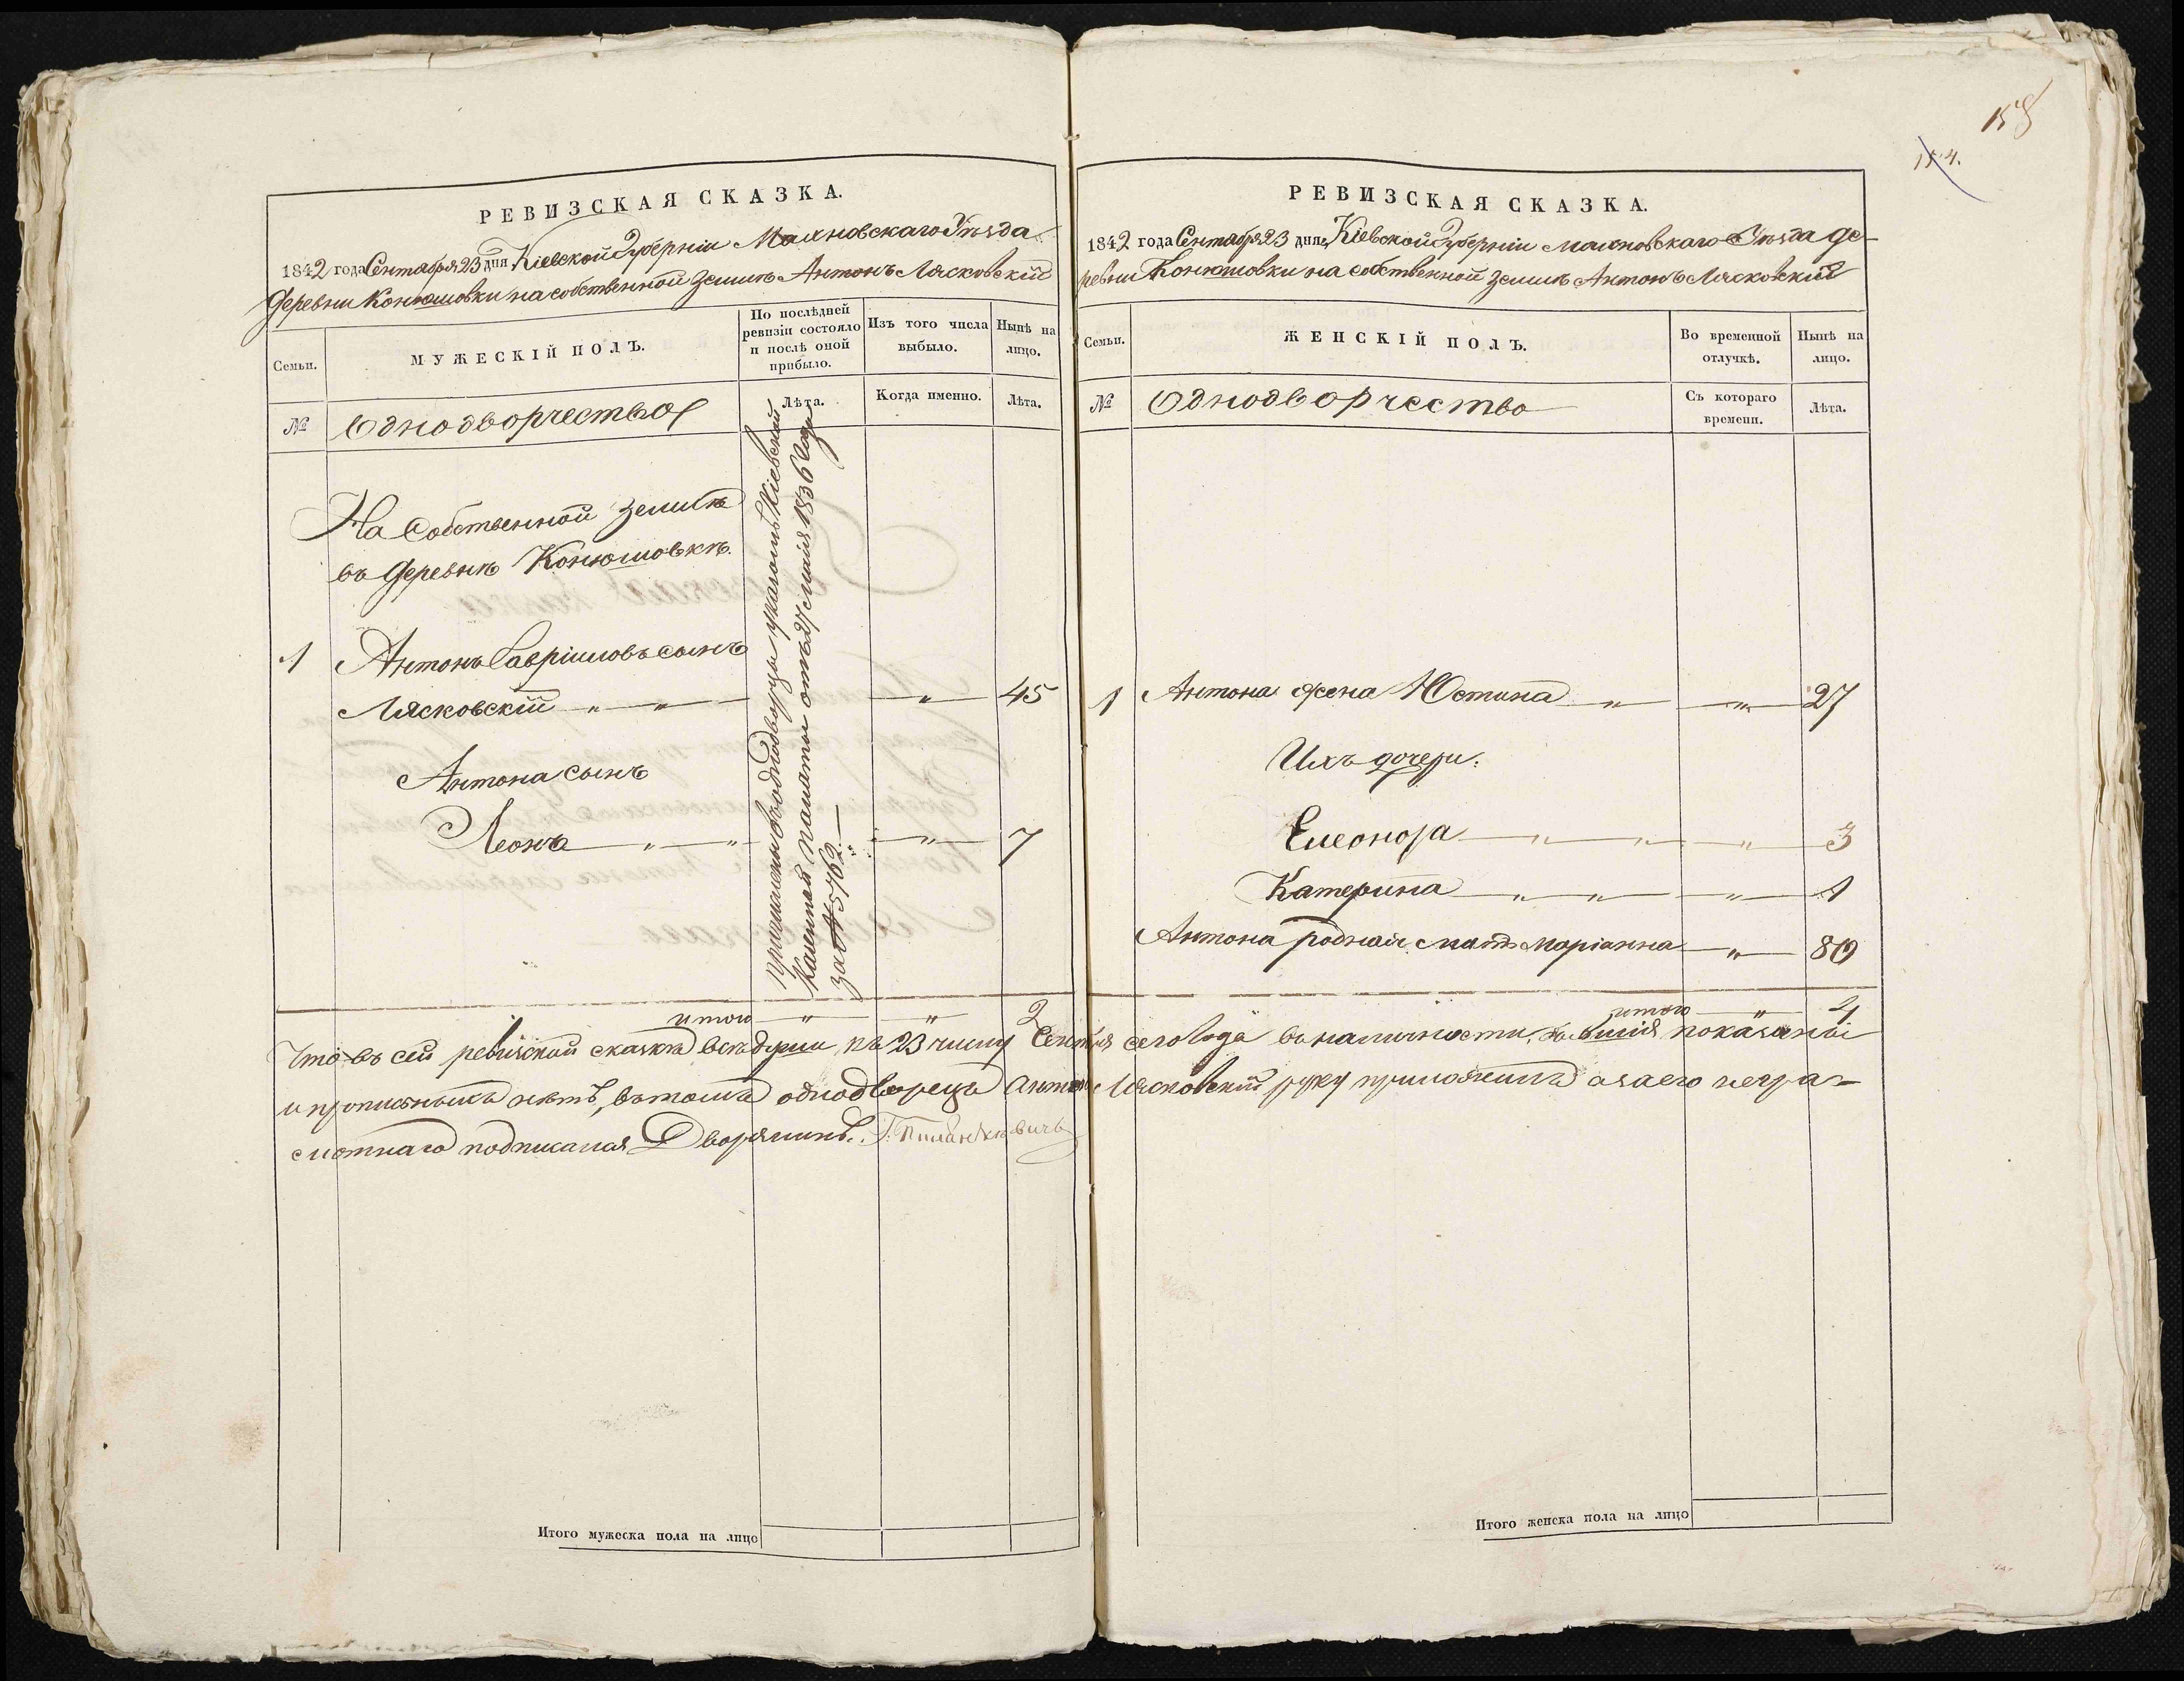 158
154.
РЕВИЗСКАЯ СКАЗКА.
1842 года Сентября 23 дня Кіевской Губерніи Махновскаго Уѣзда
деревни Конюшовки на собственной землѣ Антонъ Лясковскій
Семьи.
МУЖЕСКІЙ ПОЛЪ.
По послѣдней
ревизіи состояло
и послѣ оной
прибыло.
Изъ того числа
выбыло.
Нынѣ на
лицо.
№
Однодворчество
Лѣта.
Когда именно.
Лѣта.
На собственной землѣ
въ деревнѣ Конюшовкѣ.
1 Антонъ Гавріиловъ сынъ
Лясковскій " " " 45
Антона сынъ
Леонъ " " " 7
причислены въ однодворцы указомъ Кіевской
Казенной палаты отъ 27 маія 1836 года
за № 5762
итого " " 2
РЕВИЗСКАЯ СКАЗКА.
1842 года Сентября 23 дня Кіевской Губерніи Махновскаго Уѣзда де-
ревни Конюшовки на собственной землѣ Антонъ Лясковскій
Семьи.
ЖЕНСКІЙ ПОЛЪ.
Во временной
отлучкѣ.
Нынѣ на
лицо.
№
Однодворчество
Съ котораго
времени.
Лѣта.
1 Антона жена Юстина " " 27
Ихъ дочери:
Елеонора " " " 3
Катерина " " " 1
Антона родная мать Маріанна " 80
итого " 4
Что въ сей ревизской сказкѣ всѣ души къ 23 числу Сентбря сего года въ наличности бывшія показаны
и прописныхъ нѣтъ, въ томъ однодворецъ Антонъ Лясковскій руку приложилъ а за его негра-
мотнаго подписался Дворянинъ
Итого мужеска пола на лицо
Итого женска пола на лицо